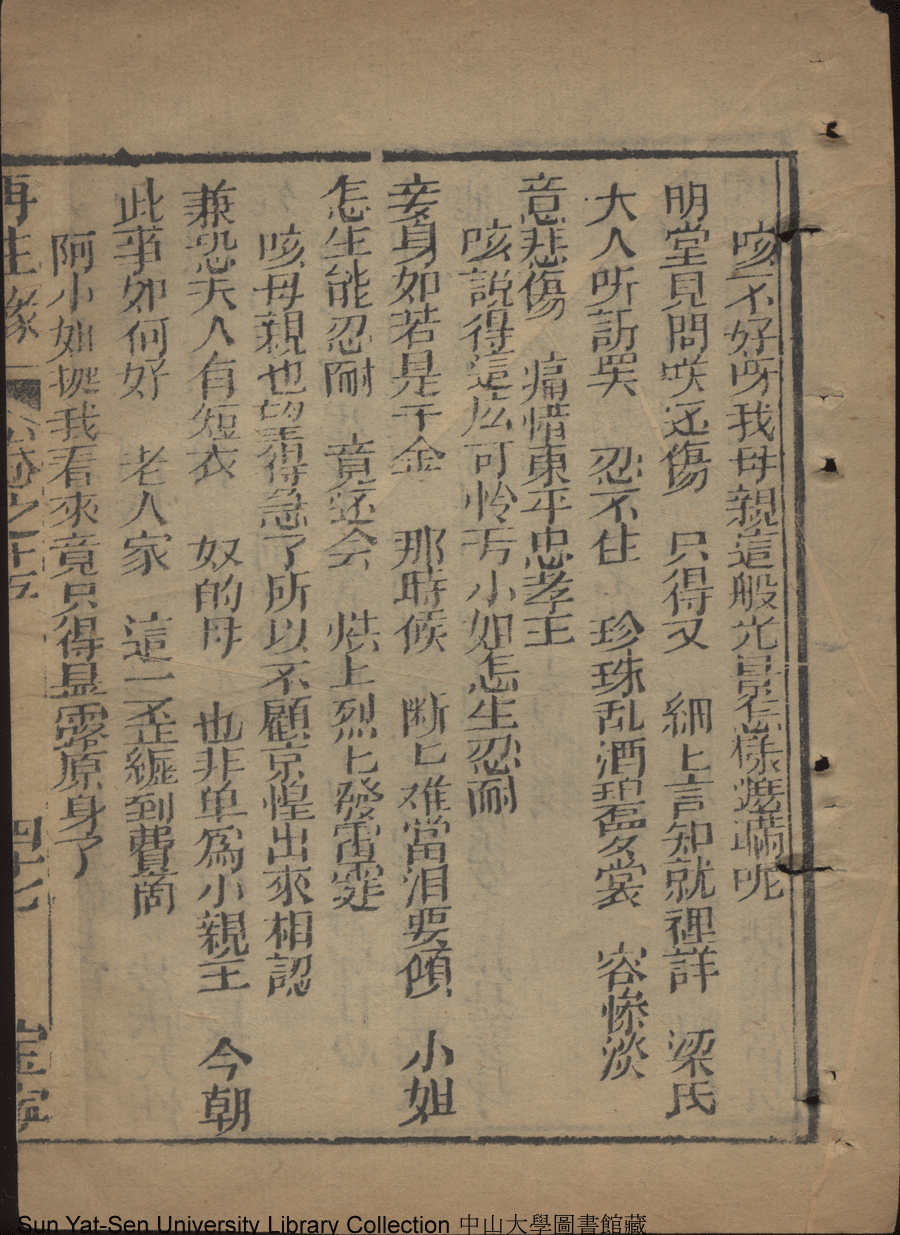 咳不好呀我母親這般光景怎樣遮瞞呢
明堂見問咲還傷　只得又　細匕言知就裡詳　梁氏
大人听訴罢　忍不住　珍珠乱洒碧羅裳　容慘淡
意悲傷　痛惜東平忠孝王
咳說得這広可怜丐小如怎生忍耐
妾身如若是千金　那時候　断匕难當泪要傾　小姐
怎生能忍耐　竟还会　烘上烈匕發雷霆
咳母親也望得急了所以不顧京惶出來相認
兼恐夫人有短衣　奴的母　也非单為小親王　今朝
此事如何好　老人家　這一歪纏到費茼
阿小如㨿我看來竟只得显露原身了
再生緣　卷之十五　四十七　宝寧
Sun Yat-Sen University Library Collection 中山大學圖書館藏